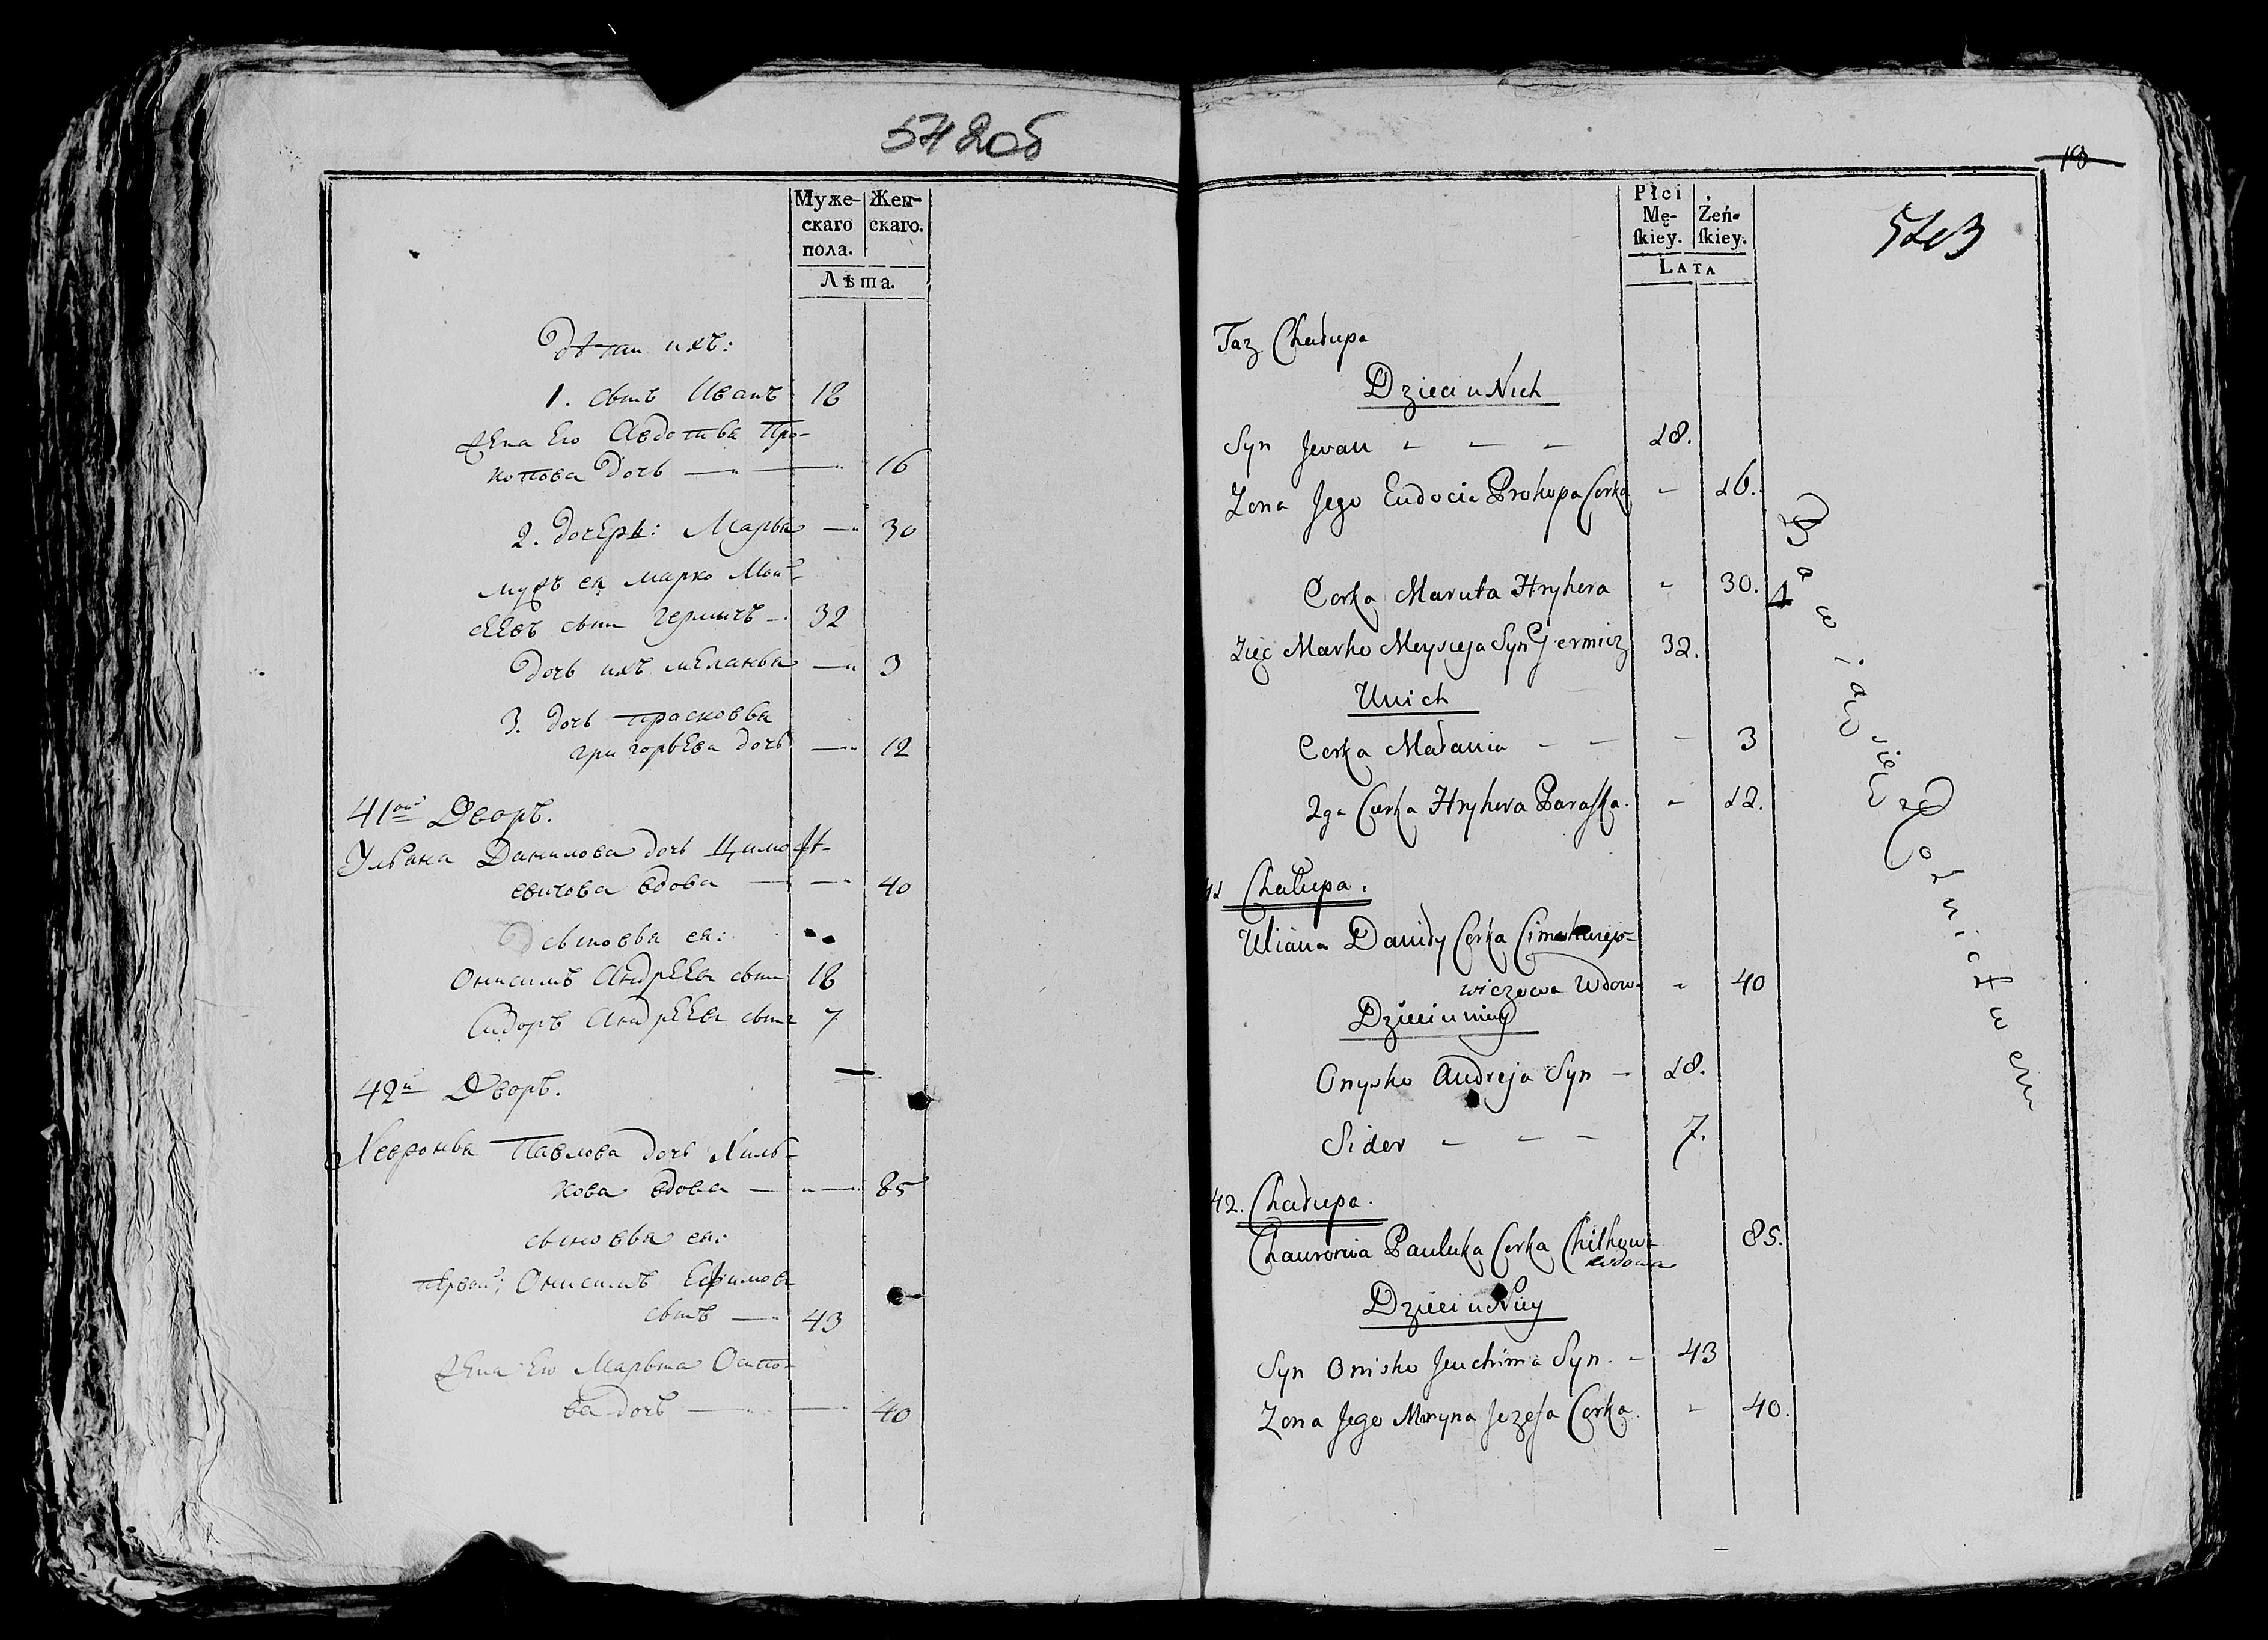 542об
Муже-
скаго
пола.
Жен-
скаго.
Лѣта.
Дѣти ихъ:
1. сынъ Иванъ 18
Жена Его Авдотья Про-
копова дочь — 16
2. дочерь: Марья — 30
мужъ ея Марко Мои-
сеевъ сынъ Гермичъ — 32
Дочь ихъ Меланья — 3
3. дочь Прасковья
григорьева дочь — 12
41ой Дворъ.
Ульяна Данилова дочь Цимох-
евичова вдова — 40
Сыновья ея:
Онисимъ Андреевъ сынъ 18
Сидоръ Андреевъ сынъ 7
42й Дворъ.
Хевронья Павлова дочь Хиль-
кова вдова — 85
сыновья ея:
первой: Онисимъ Ефимовъ
сынъ — 43
Жена Его Марьна Осипо-
ва дочь — 40
18
543
Płci
Mę-
ſkiey.
Żeń-
ſkiey.
LATA
Taz Chałupa
Dzieci u Nich
Syn Jwan - - - 18.
Zona Jego Eudocia Prohopa Corka - 16.
Corka Maruta Hryhora - 30.
Zięć Marko Moysieja Syn Germicz 32.
U nich
Corka Małania - - - 3
2ga Corka Hryhora Paraſka. - 12.
41 Chałupa.
Uliana Daniły Corka Cimochiejo-
wiczowa Wdowa - 40
Dzieci u niey
Onysko Andreja Syn - 18.
Sidor - - - 7.
42. Chałupa.
Chauronia Pauluka Corka Chilkowa 85.
wdowa
Dzieci u Niey
Syn Onisko Jeuchima Syn. - 43
Zona Jego Maryna Jozefa Corka. - 40.
Bawią się Rolnictwem